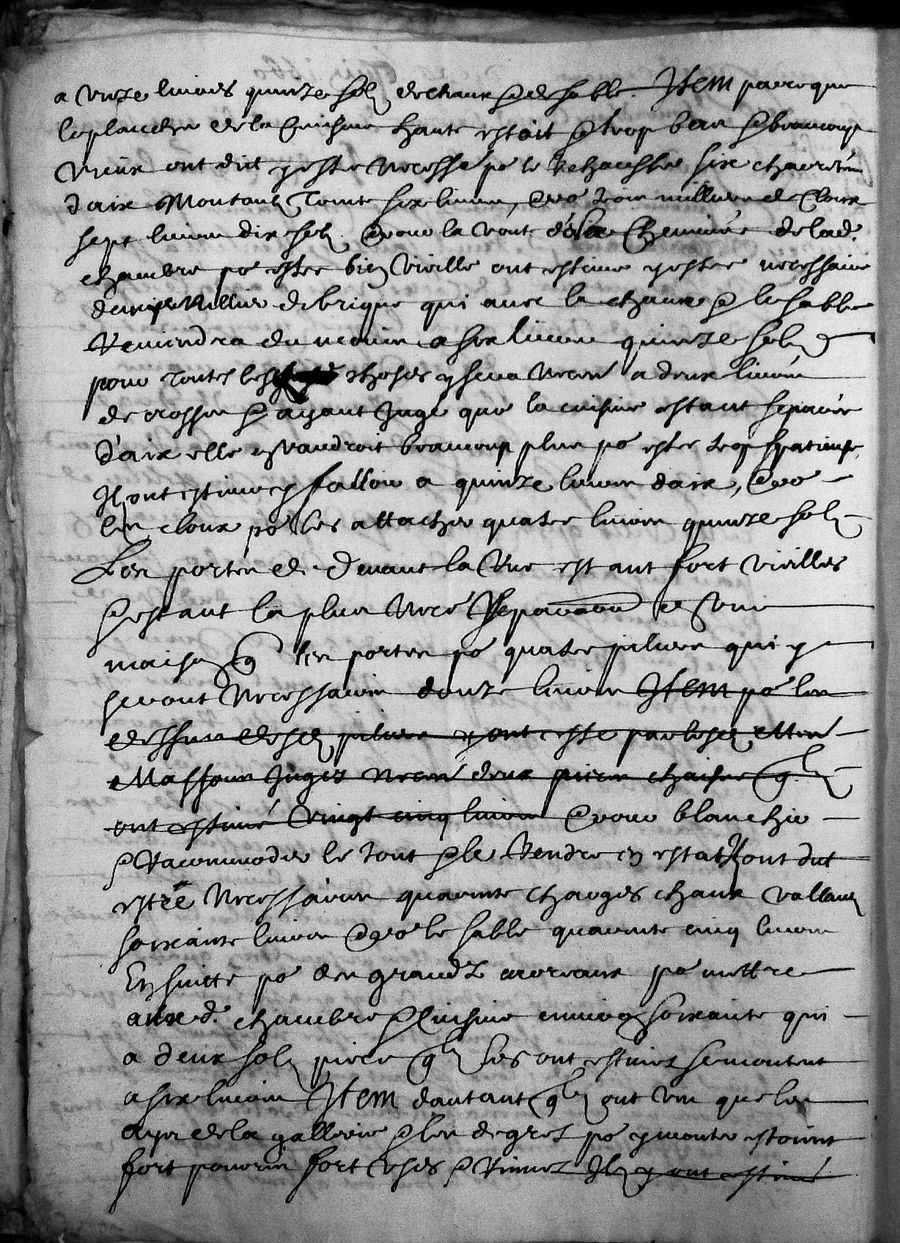 a livres quinze solz de chaux & de sable. Item parce que
le plancher de la cuisine haute estoit trop bas & beaucoup
vieux ont dit y estre necessé po le rehausser six
d'aix Montant trente six livres, & po trois milliers de cloux
sept livres dix solz. & pour la vout de la Cheminée de lad.
chambre po estre bien vieille ont estimé y estre necessaire
demy millier de brique qui avec la chaux & le sable
reviendra du moins a six livres quinze solz
pour toutes les choses y sera necrē a deux livres
de & ayant Jugé que la cuisine estant separée
d'aix elle vaudroit beaucoup plus po estre trop spatieuse
Il ont estimé y falloir a quinze livres d'aix, & po
les cloux po les attacher quatre livres quinze solz
Les portes de devant la rue estant fort vieilles
& estant la plus necrē reparaõn de toute
maison les portes po quatre piliers qui y
seront necessaires douze livres Item po les
dessus desd piliers y ont esté par lesd Mes
Massons Jugez necrē deux pierre
ont estimé vingt cinq livres & pour blanchir
& racommoder le tout & le rendre en estat Ils ont dit
estre necessaires quarante charges chaux vallant
soixante livres & po le sable quarante cinq livres
Ensuitte po des grands morceaux po mettre
aux d. chambre & cuisine environ soixante qui
a deux solz piece ql les ont estimez se montent
a six livres Item dautant ql ont veu que les
ays de la gallerie & les degrez po y monter estoient
fort pourris fort usés & ruinez Ilz y ont estimé